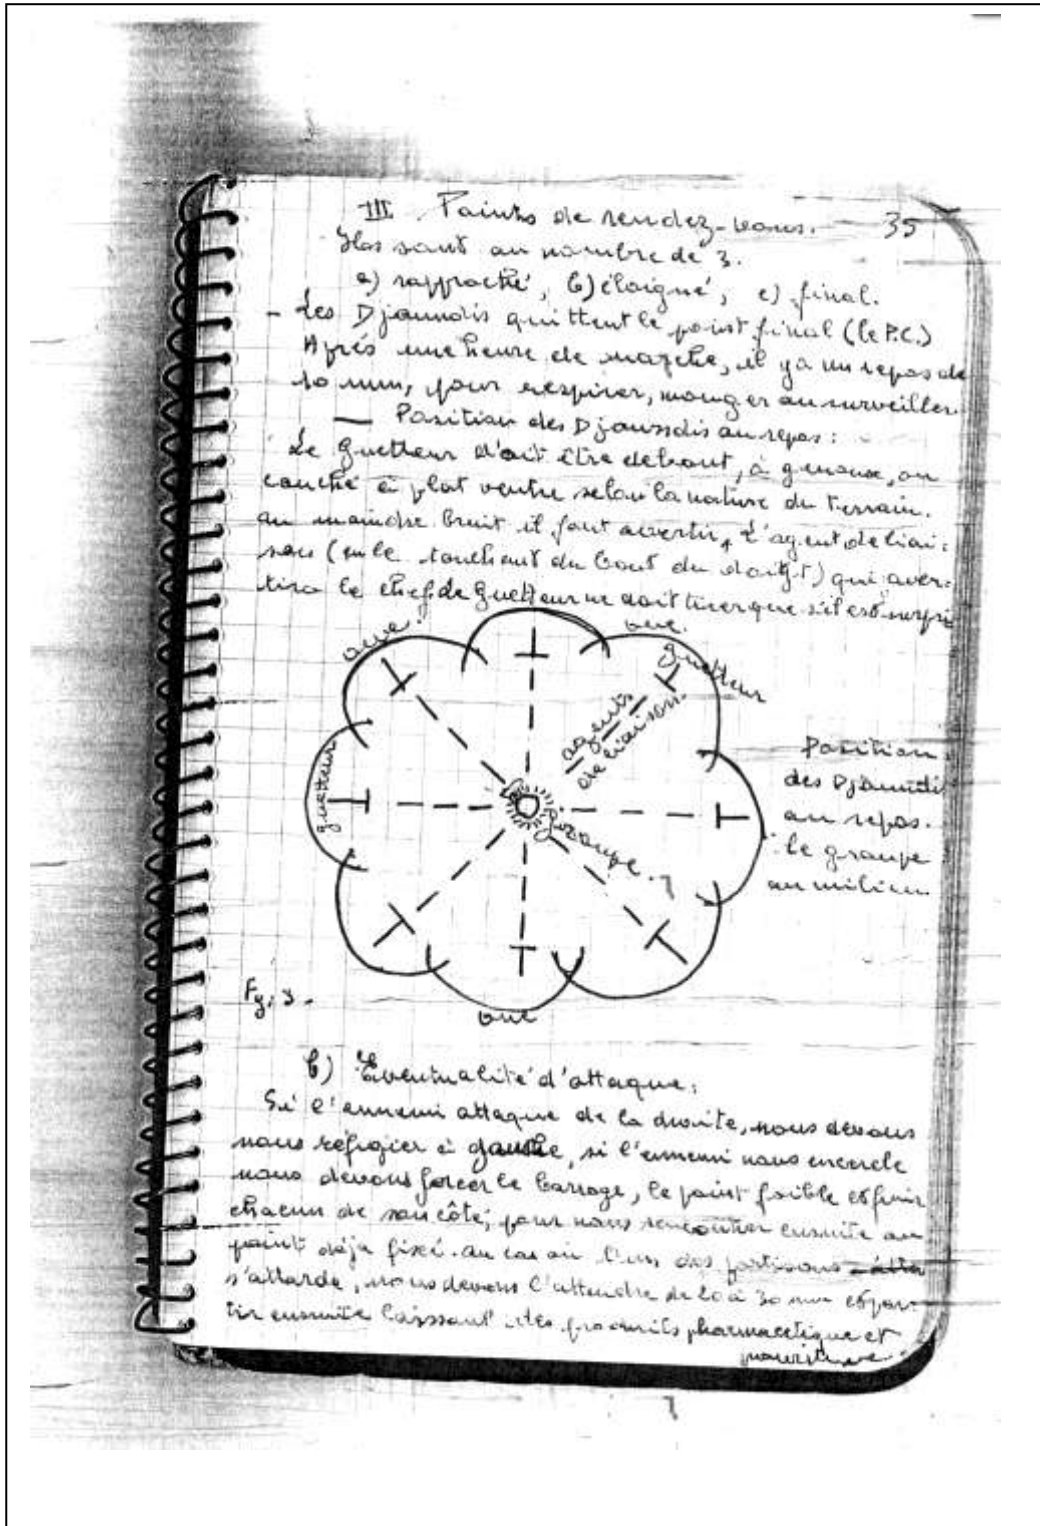 III. Points de rendez-vous. 35
Ils sont au nombre de 3.
a) rapproché, b) éloigné, c) final.
- Les Djounoudis quittent le point final (le P.C.)
Après une heure de marche, il y a un repos de
10 min, pour respirer, manger ou surveiller.
— Position des Djounoudis au repos :
Le guetteur d'oit être debout, à genoux, ou
couché à plat ventre selon la nature du terrain.
au moindre bruit il faut avertir, l'agent de liai-
son (en le touchant du bout du doigt) qui aver-
tira le chef. Le guetteur ne doit tirer que s'il est surpris
vue.
vue.
guetteur
agents
de liaison.
guetteur
groupe.
Position
des Djounoudi
au repos.
le groupe
au milieu
Fg: 3 -
vue
b) Eventualité d'attaque:
Si l'ennemi attaque de la droite, nous devons
nous réfugier à gauche, si l'ennemi nous encercle
nous devons forcer le barrage, le point faible et fuir
chacun de son côté, pour nous rencontrer ensuite au
point déja fixé. au cas où l'un des partisans
s'attarde, nous devons l'attendre de 20 à 30 mn et par-
tir ensuite laissant des produits pharmacetique et
nourriture.